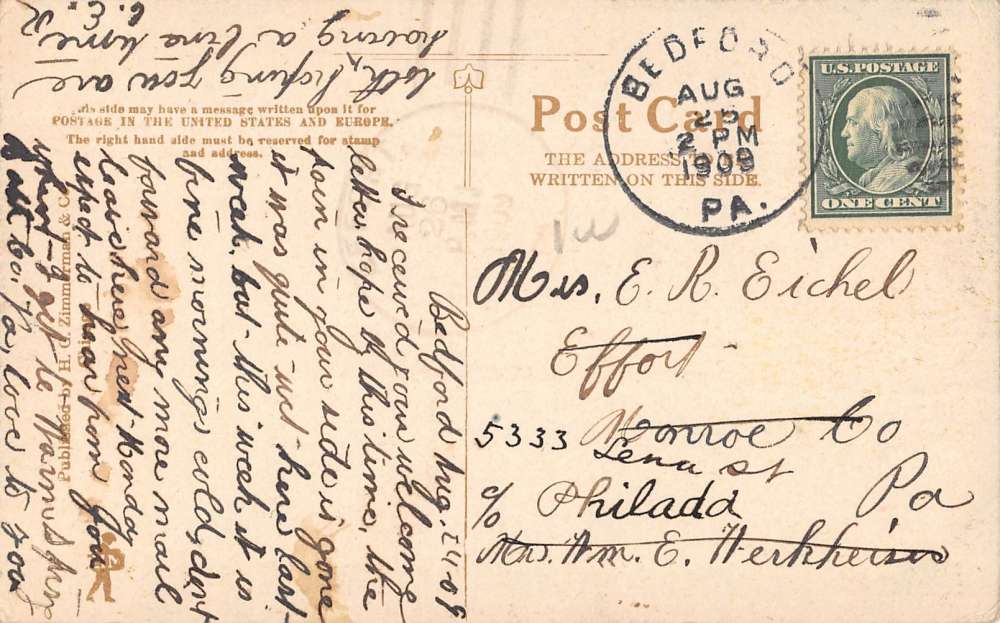 Bedford Aug. 24-09
I received your welcome
letter, hope by this time, the
pain in your side is gone
it was quite wet here last
week, but this week it is
fine mornings cold, don't
forward any more mail
leave here next Monday
expect to hear from you
get to
Pa, love to you
both, hoping you are
having a fine time
C. E. R.
This side may have a message written upon it for
POSTAGE IN THE UNITED STATES AND EUROPE.
The right hand side must be reserved for stamp
and address.
Published by H. G. Zimmerman & Co.
Post Card
THE ADDRESS TO BE
WRITTEN ON THIS SIDE.
BEDFORD
AUG
25
2 PM
1909
PA.
U.S. POSTAGE
ONE CENT
Mrs. E. R. Eichel
Effort
Monroe Co
5333 Lena St
Philada Pa
c/o
Mrs. Wm. E. Werkheiser